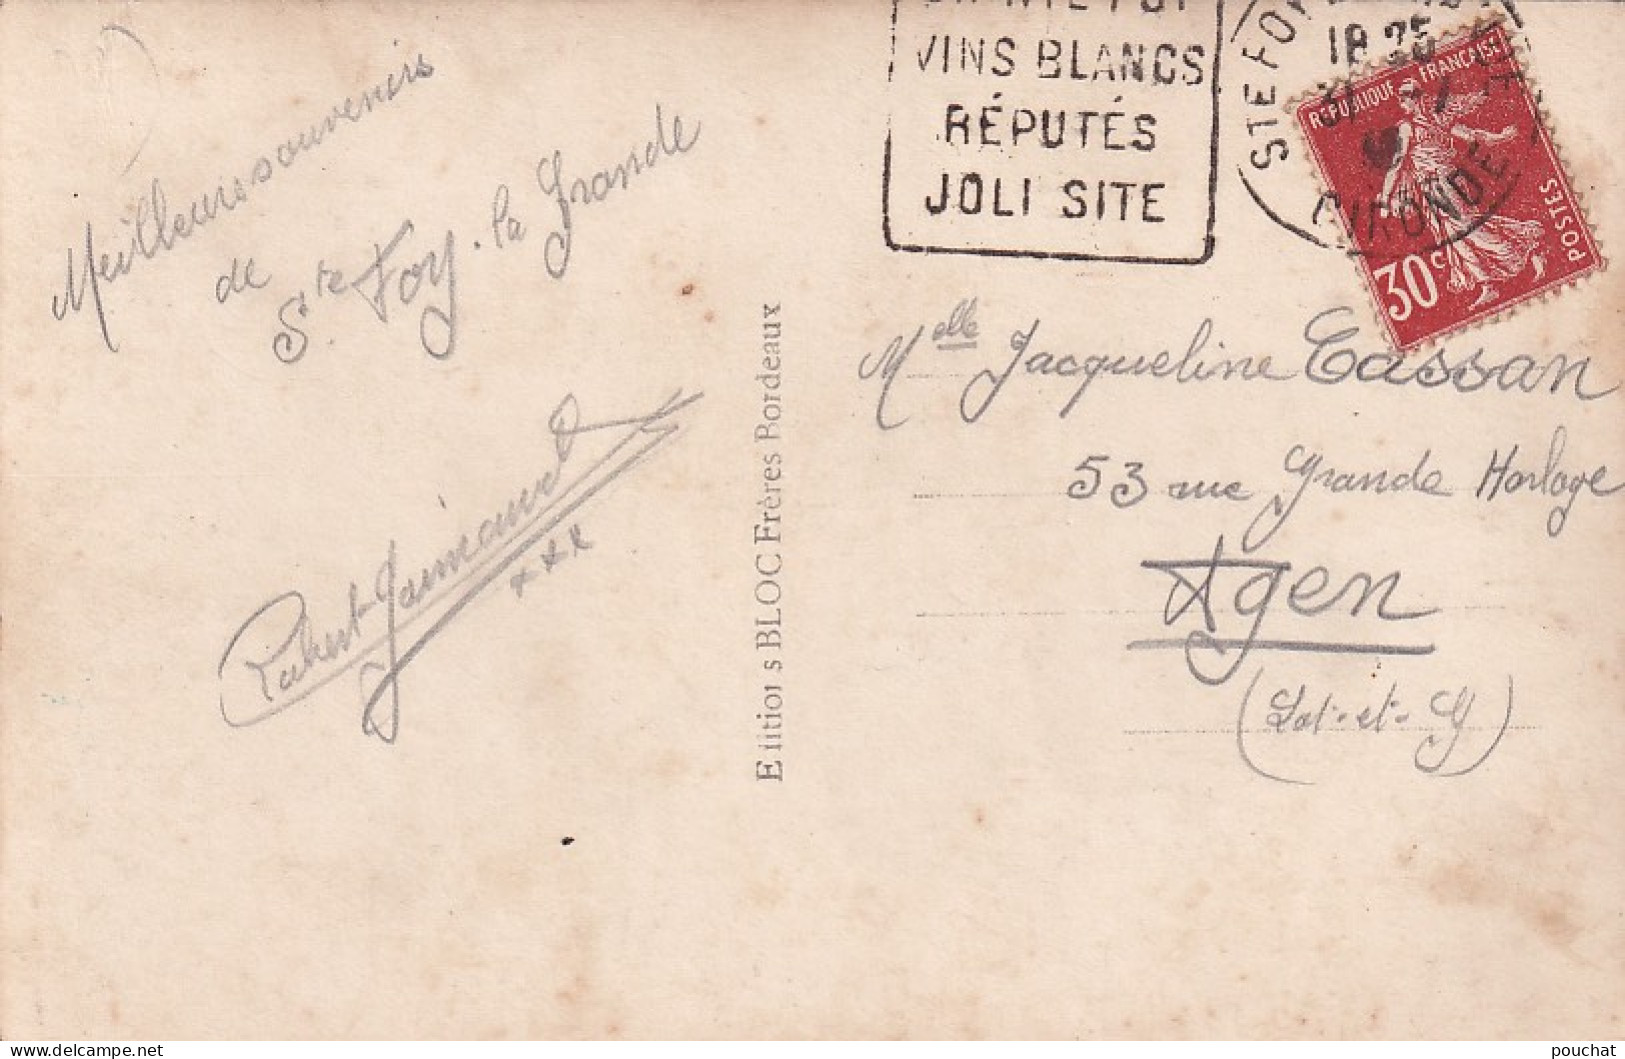 VINS BLANCS
RÉPUTÉS
JOLI SITE
STE FOY
18 35
31
GIRONDE
REPUBLIQUE FRANÇAISE
POSTES
30c
Meilleurs souvenirs
de
Ste Foy-la Grande
Editions BLOC Frères Bordeaux
Melle Jacqueline Cassan
53 rue Grande Horloge
Agen
(Lot-et-G)
pouchat